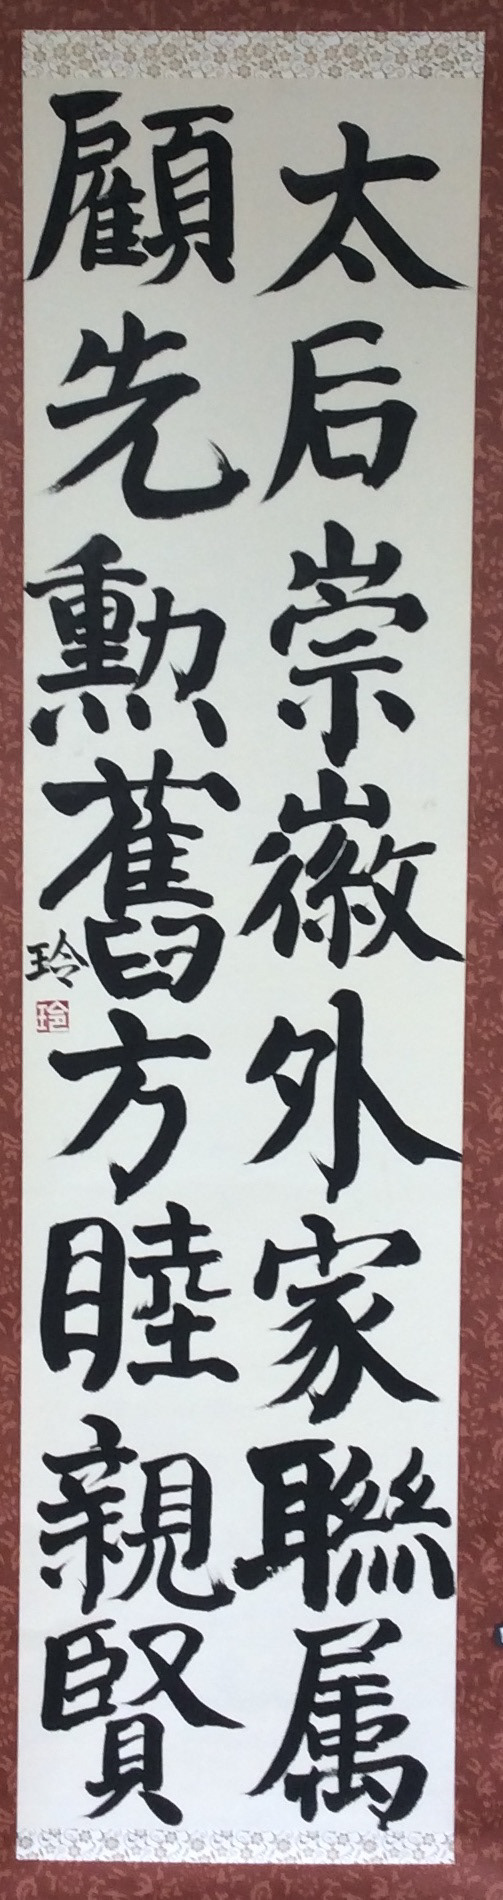 太后崇徽外家聯属
顧先勲舊方睦親賢
玲
玲